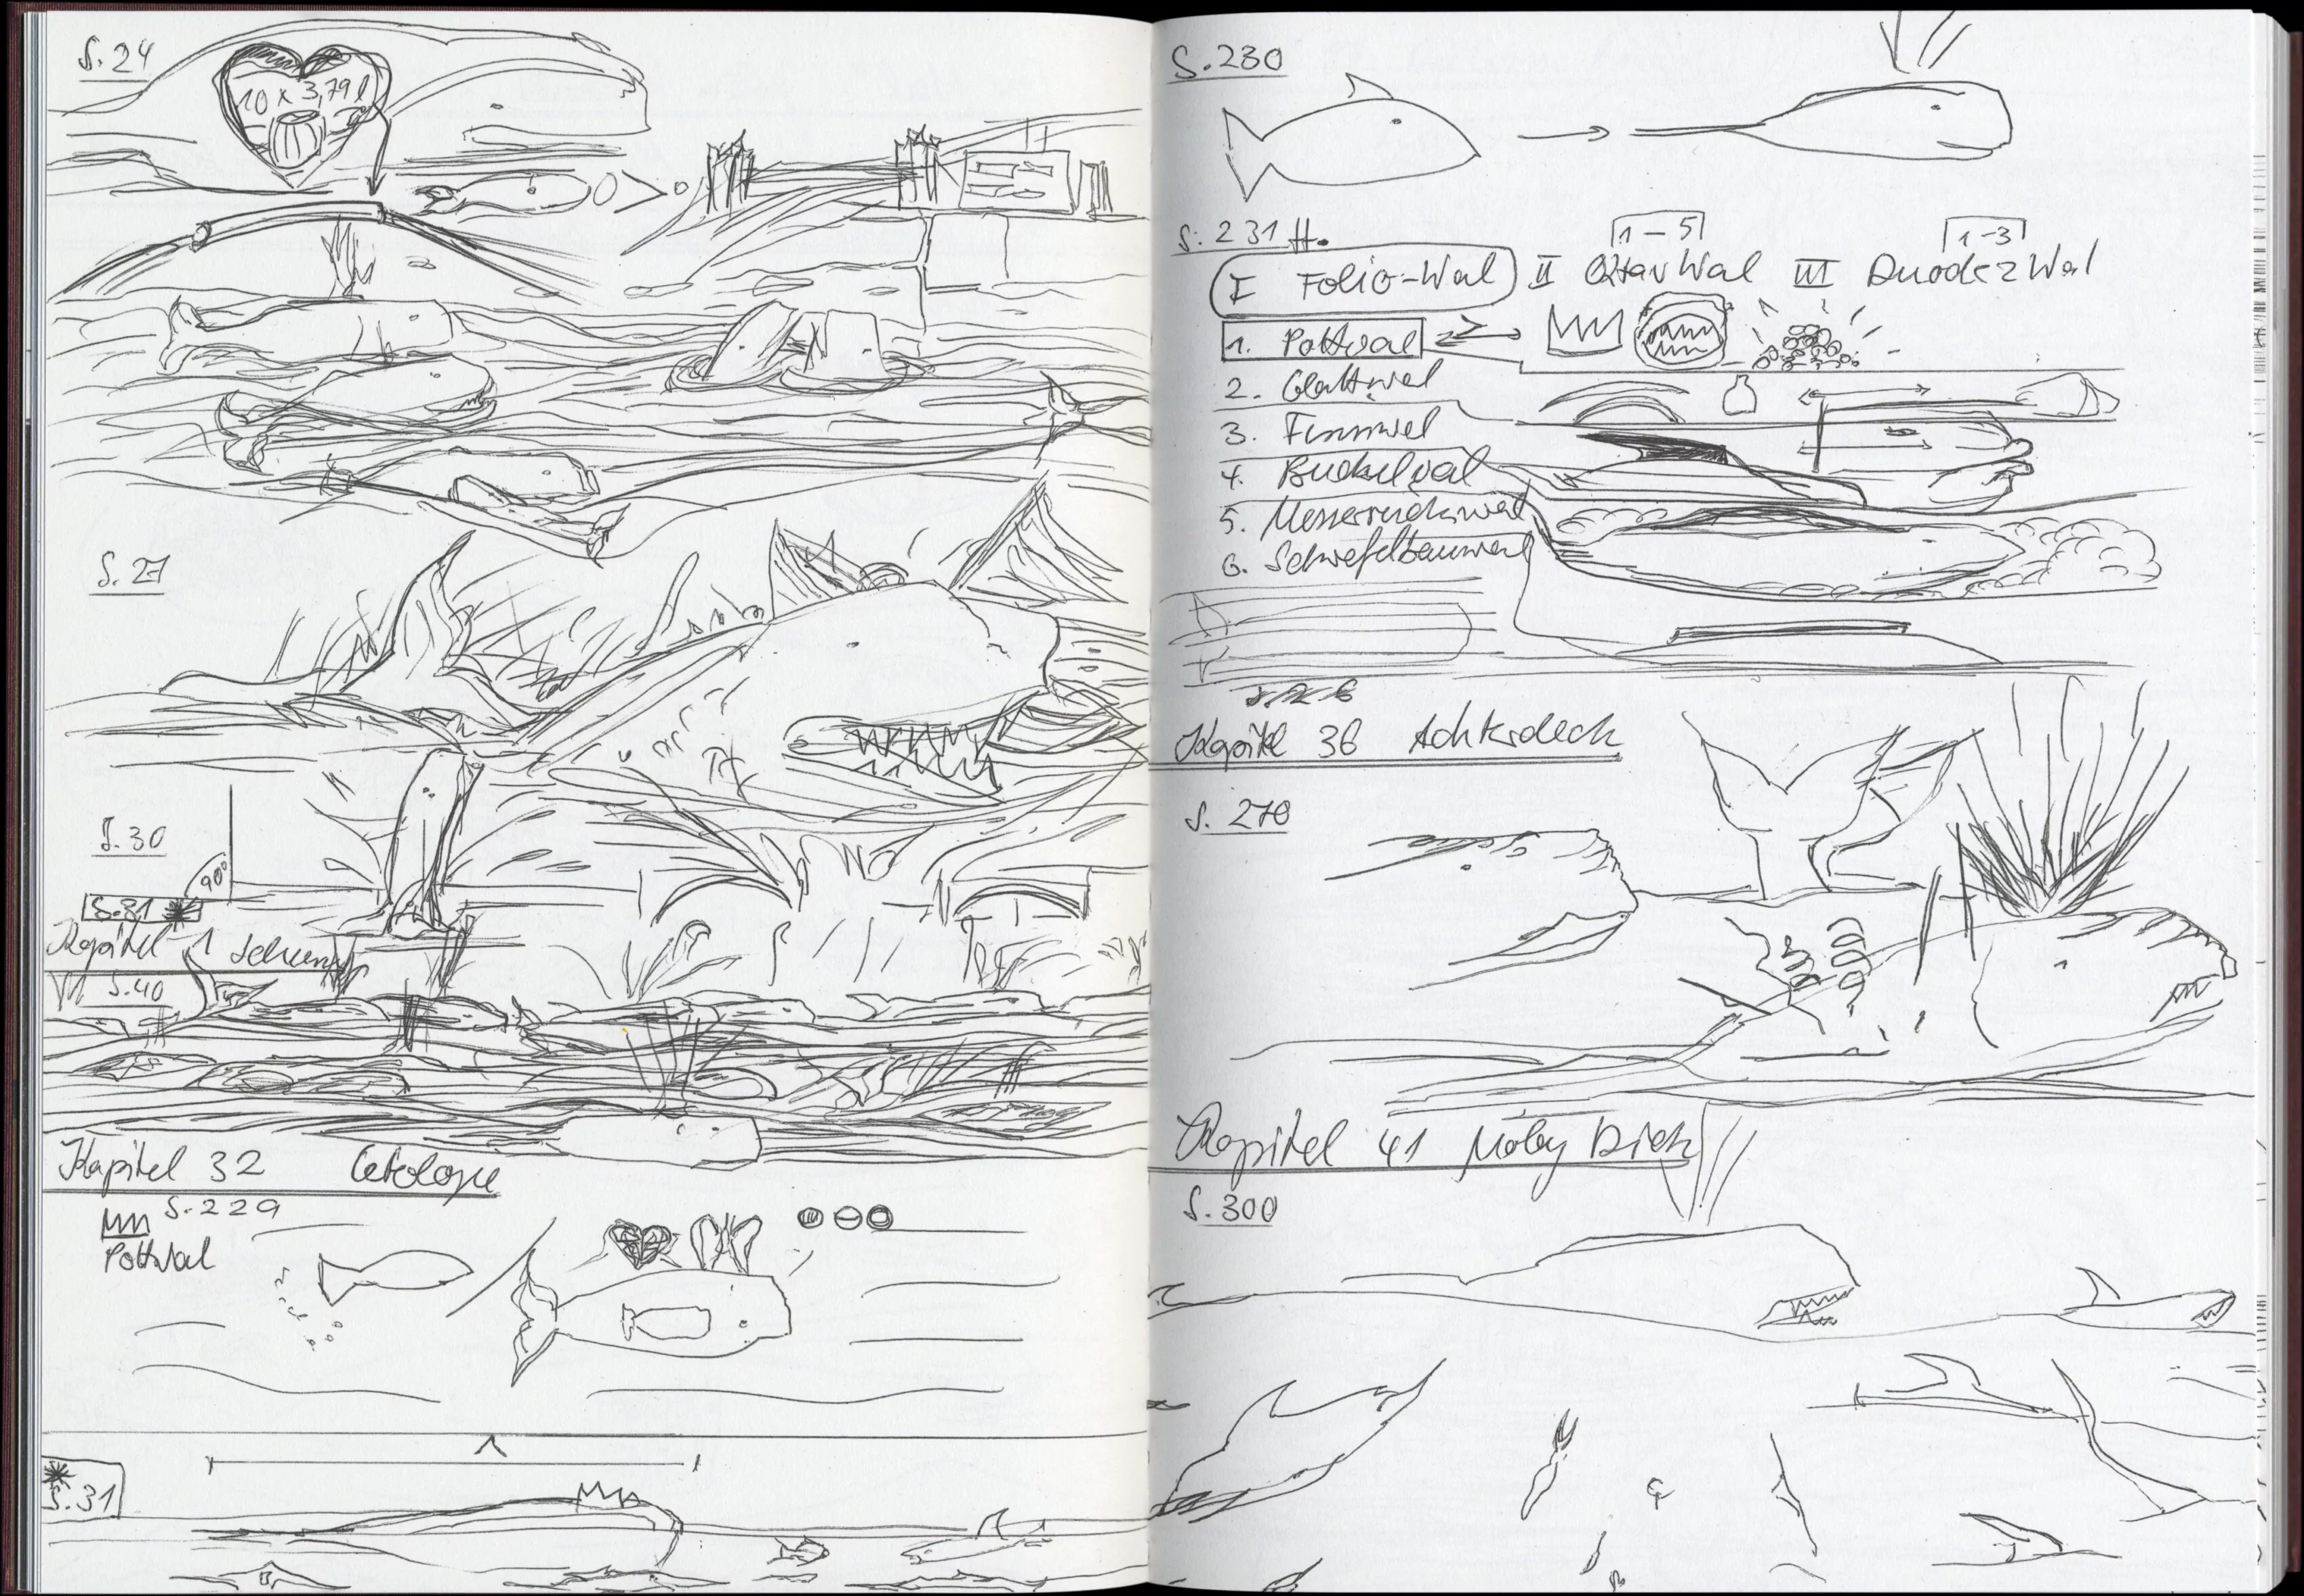 S. 24
10 x 3,79 l
S. 27
S. 30
90°
S. 31 *
Kapitel 1
S. 40
Kapitel 32 Cetologie
S. 229
Pottwal
* S. 31
S. 230
S. 231 ff.
1-5 1-3
I Folio-Wal II Oktav Wal III Duodez Wal
1. Pottwal
2. Glattwal
3. Finnwal
4. Buckelwal
5. Messerrückwal
6. Schwefelbauwal
Kapitel 36 Achterdeck
S. 270
Kapitel 41 Moby Dick
S. 300